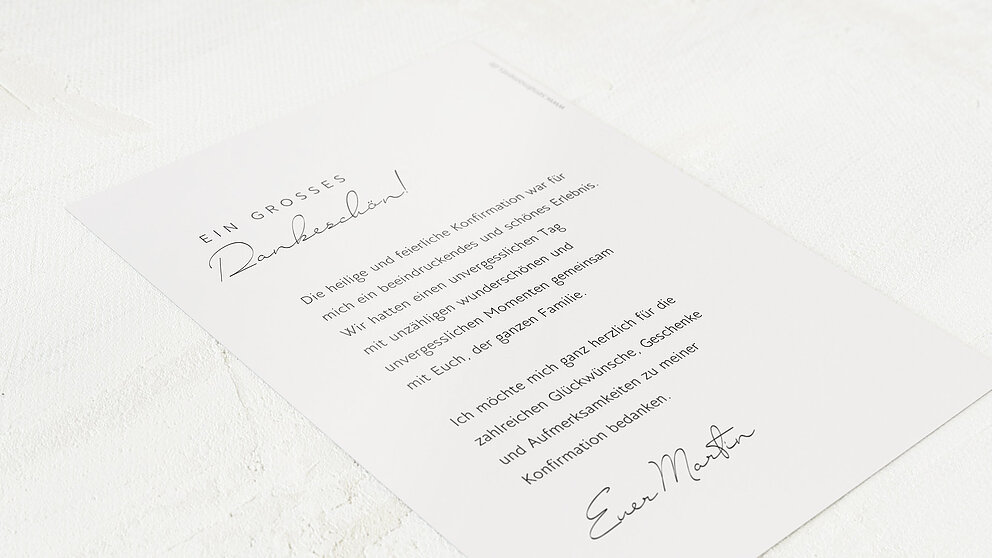 EIN GROSSES
Dankeschön!
Die heilige und feierliche Konfirmation war für
mich ein beeindruckendes und schönes Erlebnis.
Wir hatten einen unvergesslichen Tag
mit unzähligen wunderschönen und
unvergesslichen Momenten gemeinsam
mit Euch, der ganzen Familie.
Ich möchte mich ganz herzlich für die
zahlreichen Glückwünsche, Geschenke
und Aufmerksamkeiten zu meiner
Konfirmation bedanken.
Euer Martin